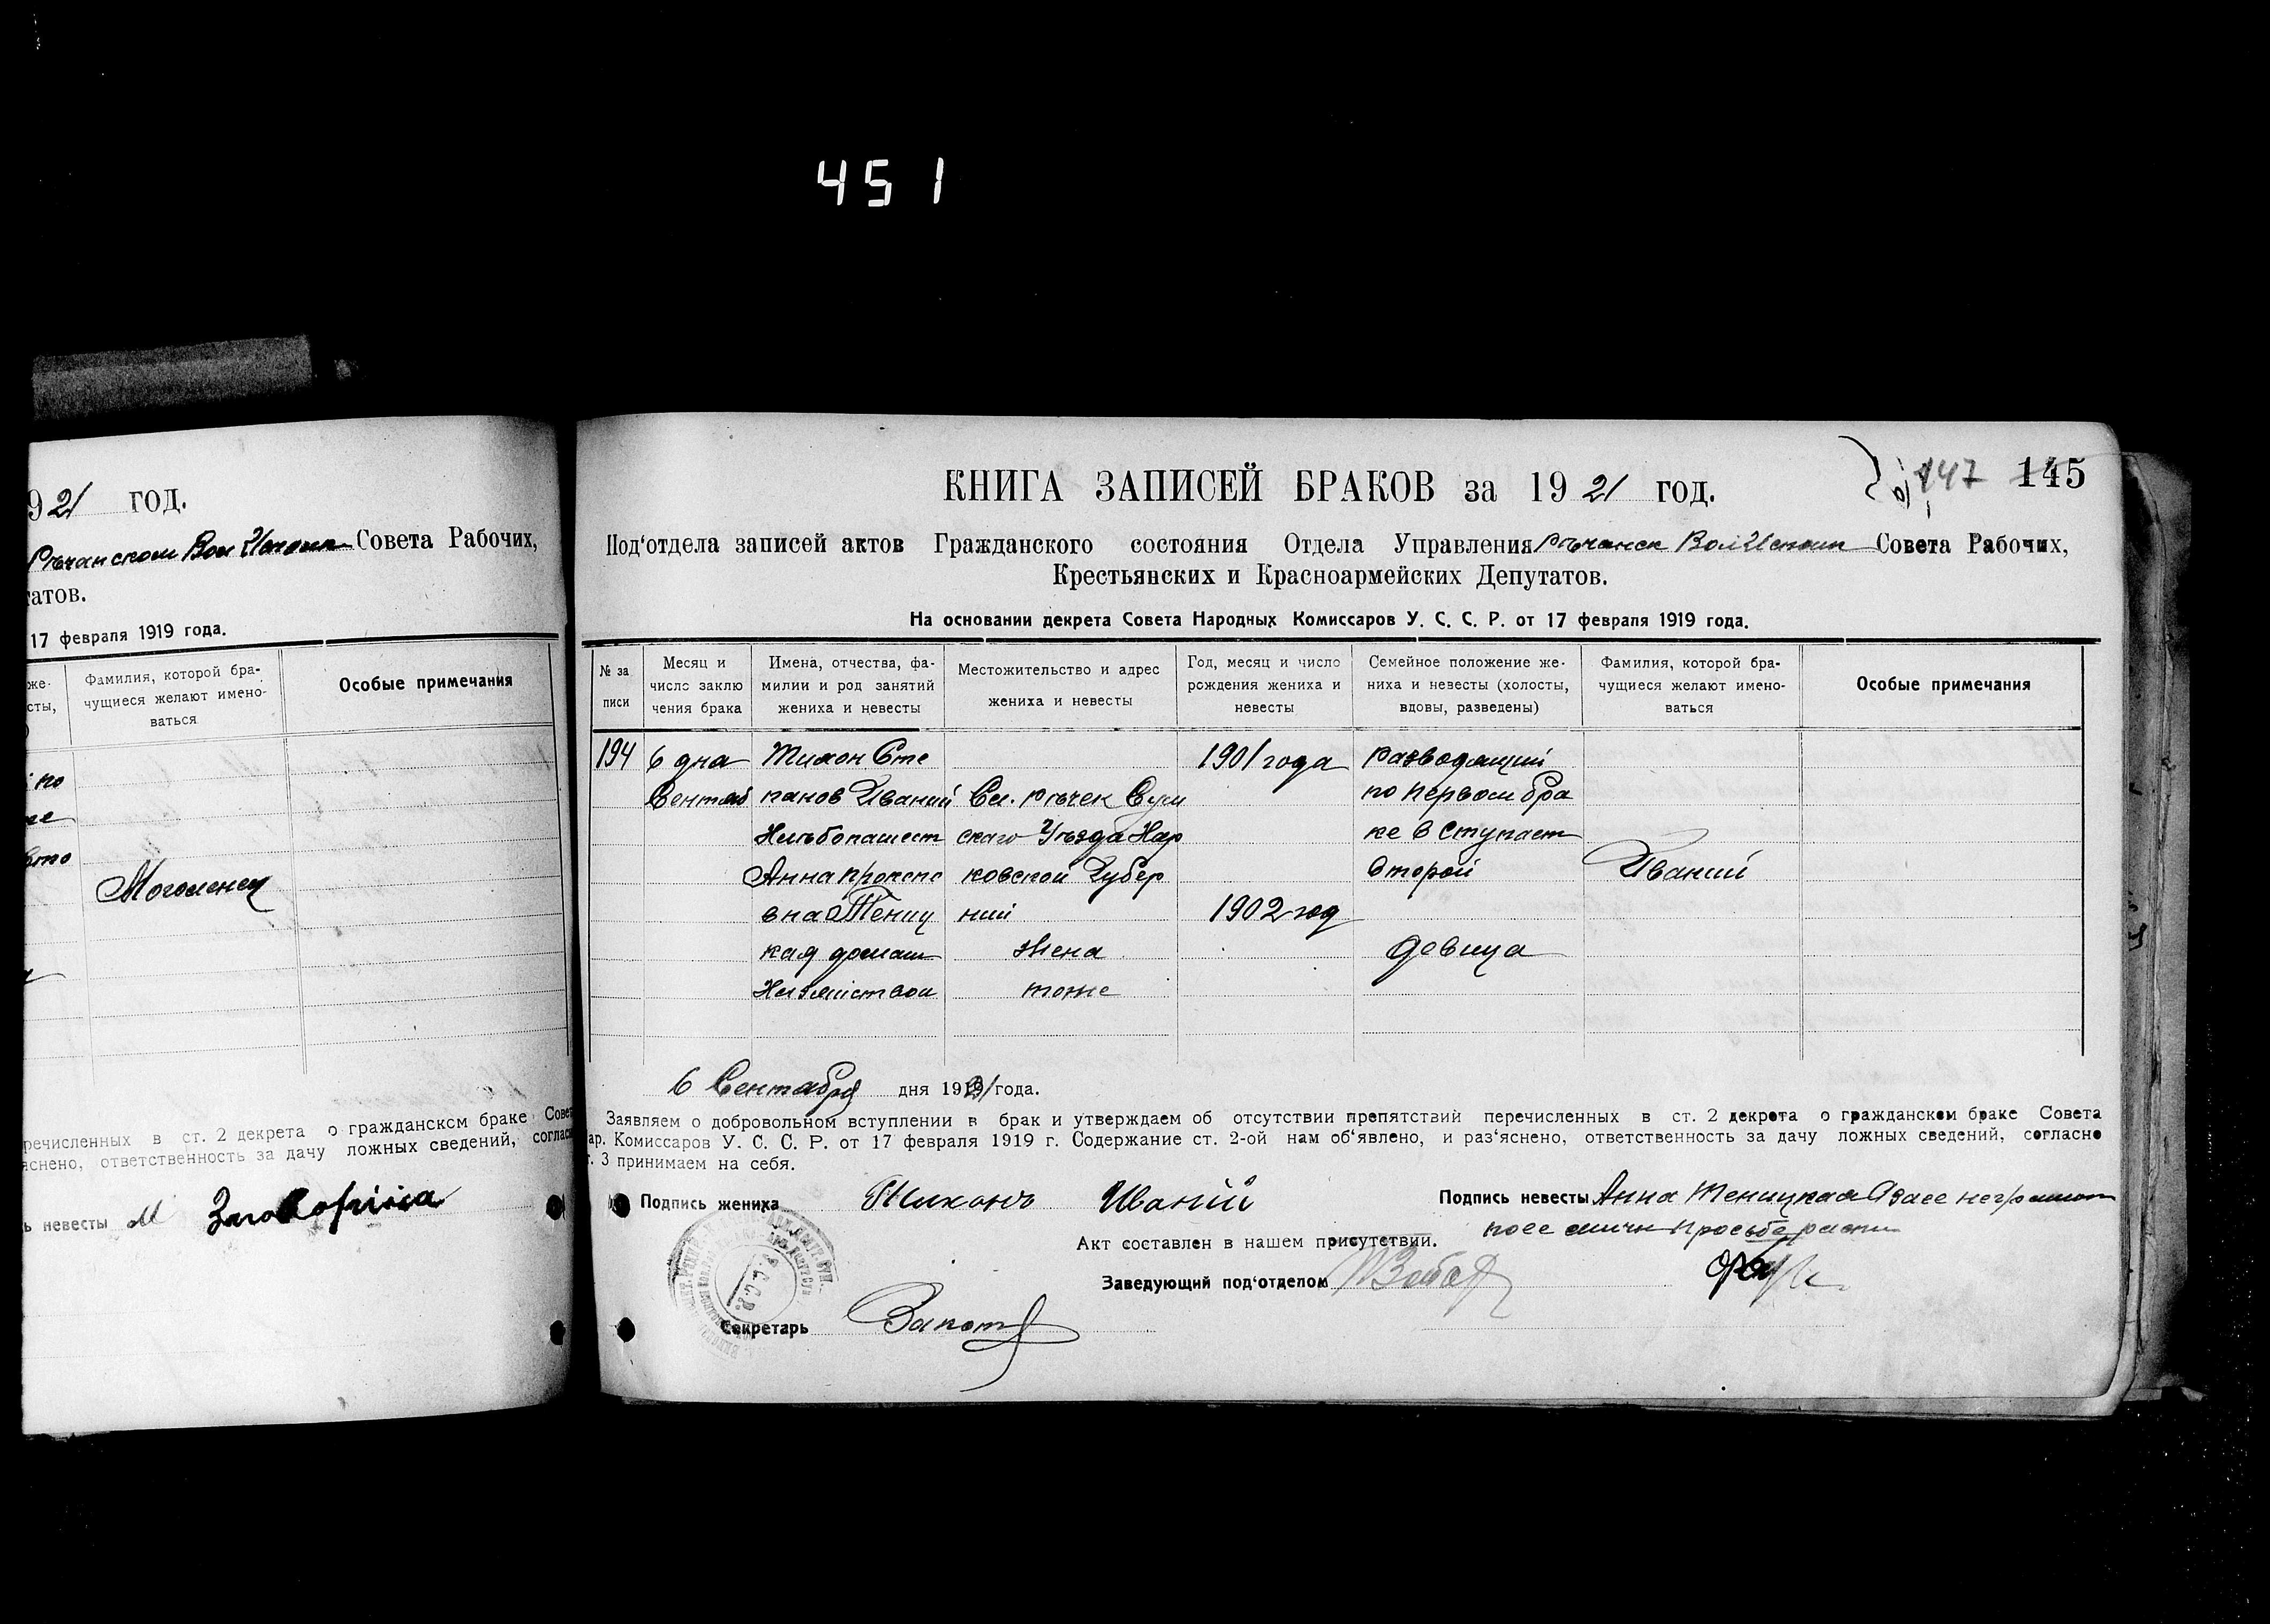 451
921 год.
Рѣчанском Вол Исполк Совета Рабочих,
татов.
17 февраля 1919 года.
же-
сты,
)
Фамилия, которой бра-
чущиеся желают имено-
ваться
Особые примечания
по
Моголенец
речисленных в ст. 2 декрета о гражданском браке Совет
яснено, ответственность за дачу ложных сведений, согласн
ь невесты
КНИГА ЗАПИСЕЙ БРАКОВ за 1921 год.
147 145
Под‘отдела записей актов Гражданского состояния Отдела Управления Рѣчанск Вол Исполк Совета Рабочих,
Крестьянских и Красноармейских Депутатов.
На основании декрета Совета Народных Комиссаров У. С. С. Р. от 17 февраля 1919 года.
№ за
писи
Месяц и
число заклю
чения брака
Имена, отчества, фа-
милии и род занятий
жениха и невесты
Местожительство и адрес
жениха и невесты
Год, месяц и число
рождения жениха и
невесты
Семейное положение же-
ниха и невесты (холосты,
вдовы, разведены)
Фамилия, которой бра-
чущиеся желают имено-
ваться
Особые примечания
194
6 дна
Сентяб
Тихон Сте
панов Иваний
Хлѣбопашест
Анна Прокопо
вна Тениц
кая домаш
Хазяіством
Сл. Рѣчек Сум
скаго Уѣзда Хар
ковской Губер
ний
Жена
тоже
1901 года
1902 год
Разводящий
по первом бра
ке в Ступает
Второй
девица
Иваний
6 Сентября дня 1921 года.
Заявляем о добровольном вступлении в брак и утверждаем об отсутствии препятствий перечисленных в ст. 2 декрета о гражданском браке Совета
ар. Комиссаров У. С. С. Р. от 17 февраля 1919 г. Содержание ст. 2-ой нам об‘явлено, и раз‘яснено, ответственность за дачу ложных сведений, согласно
т. 3 принимаем на себя.
Подпись жениха Тихонъ Иваній
Подпись невесты Анна Теницкая Азаее неграмот
поее личн просьбе распи
Акт составлен в нашем присутствии.
Заведующий под‘отделом
Секретарь